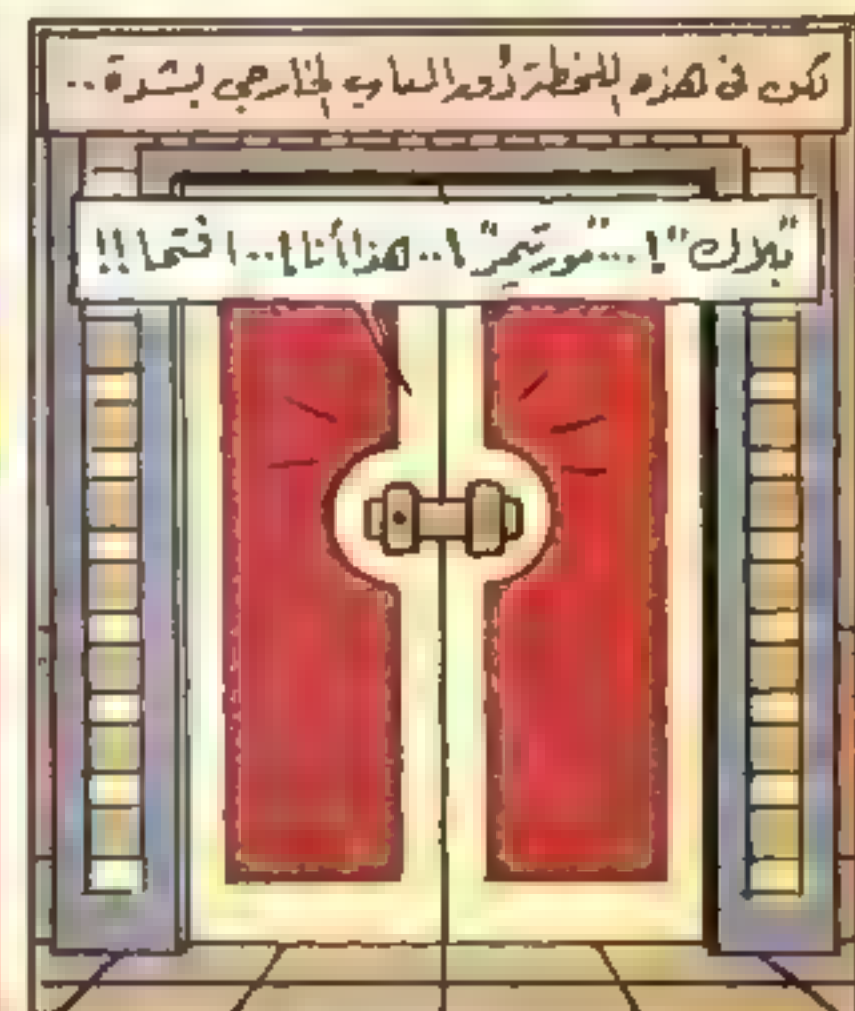 لكن في هذه اللحظة دُق الباب الخارجي بشدة..
"بلاك"!..."مورتيمر"!..هذا أنا!..افتحا!!